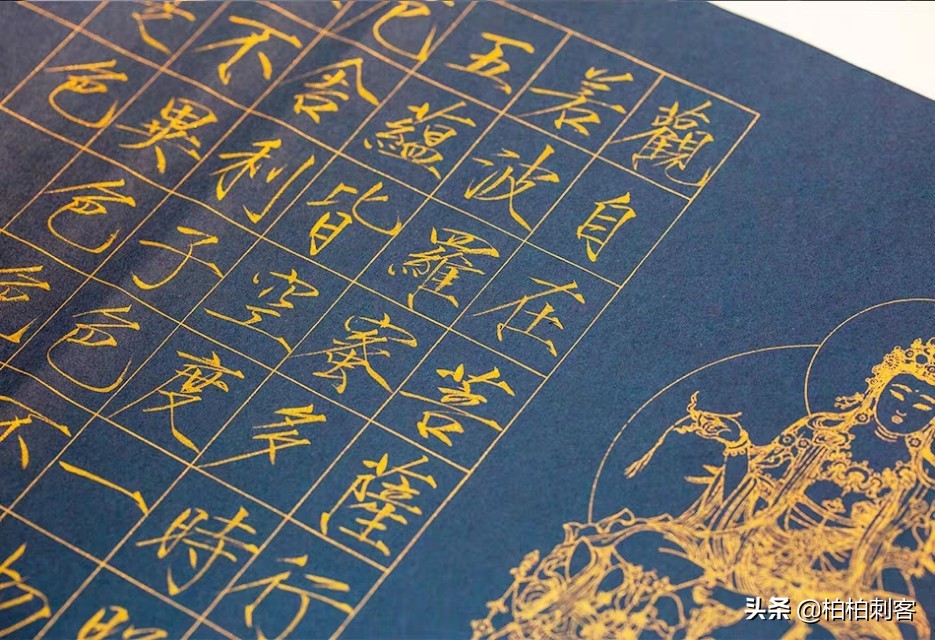 觀自在菩薩行
若波羅蜜多時照
五蘊皆空度一
舍利子色不
不異色色
色
头条 @柏柏刺客